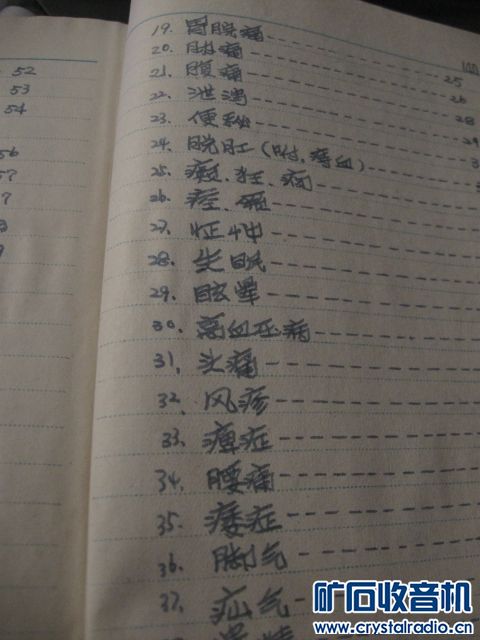 52
53
54
56
57
7
19. 胃脘痛 25
20. 胁痛 26
21. 腹痛 28
22. 泄泻 29
23. 便秘
24. 脱肛(附:痔血)
25. 癫、狂、痫
26. 痉、
27. 怔忡
28. 失眠
29. 眩晕
30. 高血压病
31. 头痛
32. 风疹
33. 痹症
34. 腰痛
35. 痿症
36. 脚气
37. 疝气
矿石收音机
www.crystalradio.cn